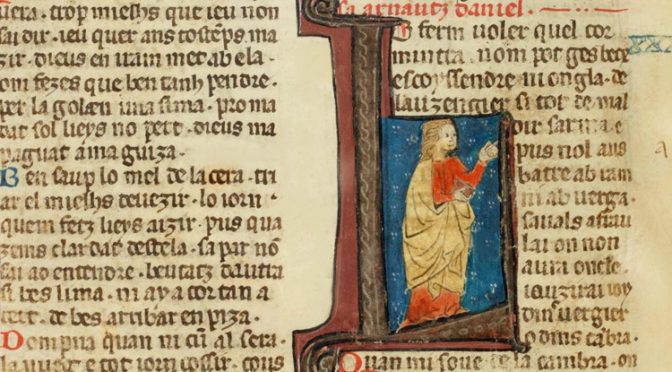 uera, trop mielhs que ieu non
sai dir. ieu quer ans costeps ma
zir. dieus en iram met ab ela.
om fezes que ben tanh pendre.
per la gola en una sima. pro ma
dat sol lieys no pert. dieus ma
paguat a ma guiza.
Ben saup lo mel de la cera. tri
ar el mielhs deuezir. lo iorn
quem fetz lieys aizir. pus qua
zems clardat destela. sa par nõ
sai ao entendre. beutatz dautra
si bes lima. ni aya cor tan a
cert. de bes arribar en piza.
Dompna quan mi cũ al sera.
la nueg e tot iorn cossir. cous
sa arnautz daniel.
Lo ferm uoler quel cor
mintra. nom pot ges becx
escoyssendre ni ongla. de
lauzengier si tot de mal
dir sarma. e
pus nol aus
batre ab ram
ni ab uerga.
sauals a frau
lai on non
aura oncle.
iauzirai ioy
dins uergier
o dins cãbra.
Quan mi soue de la cambra. on